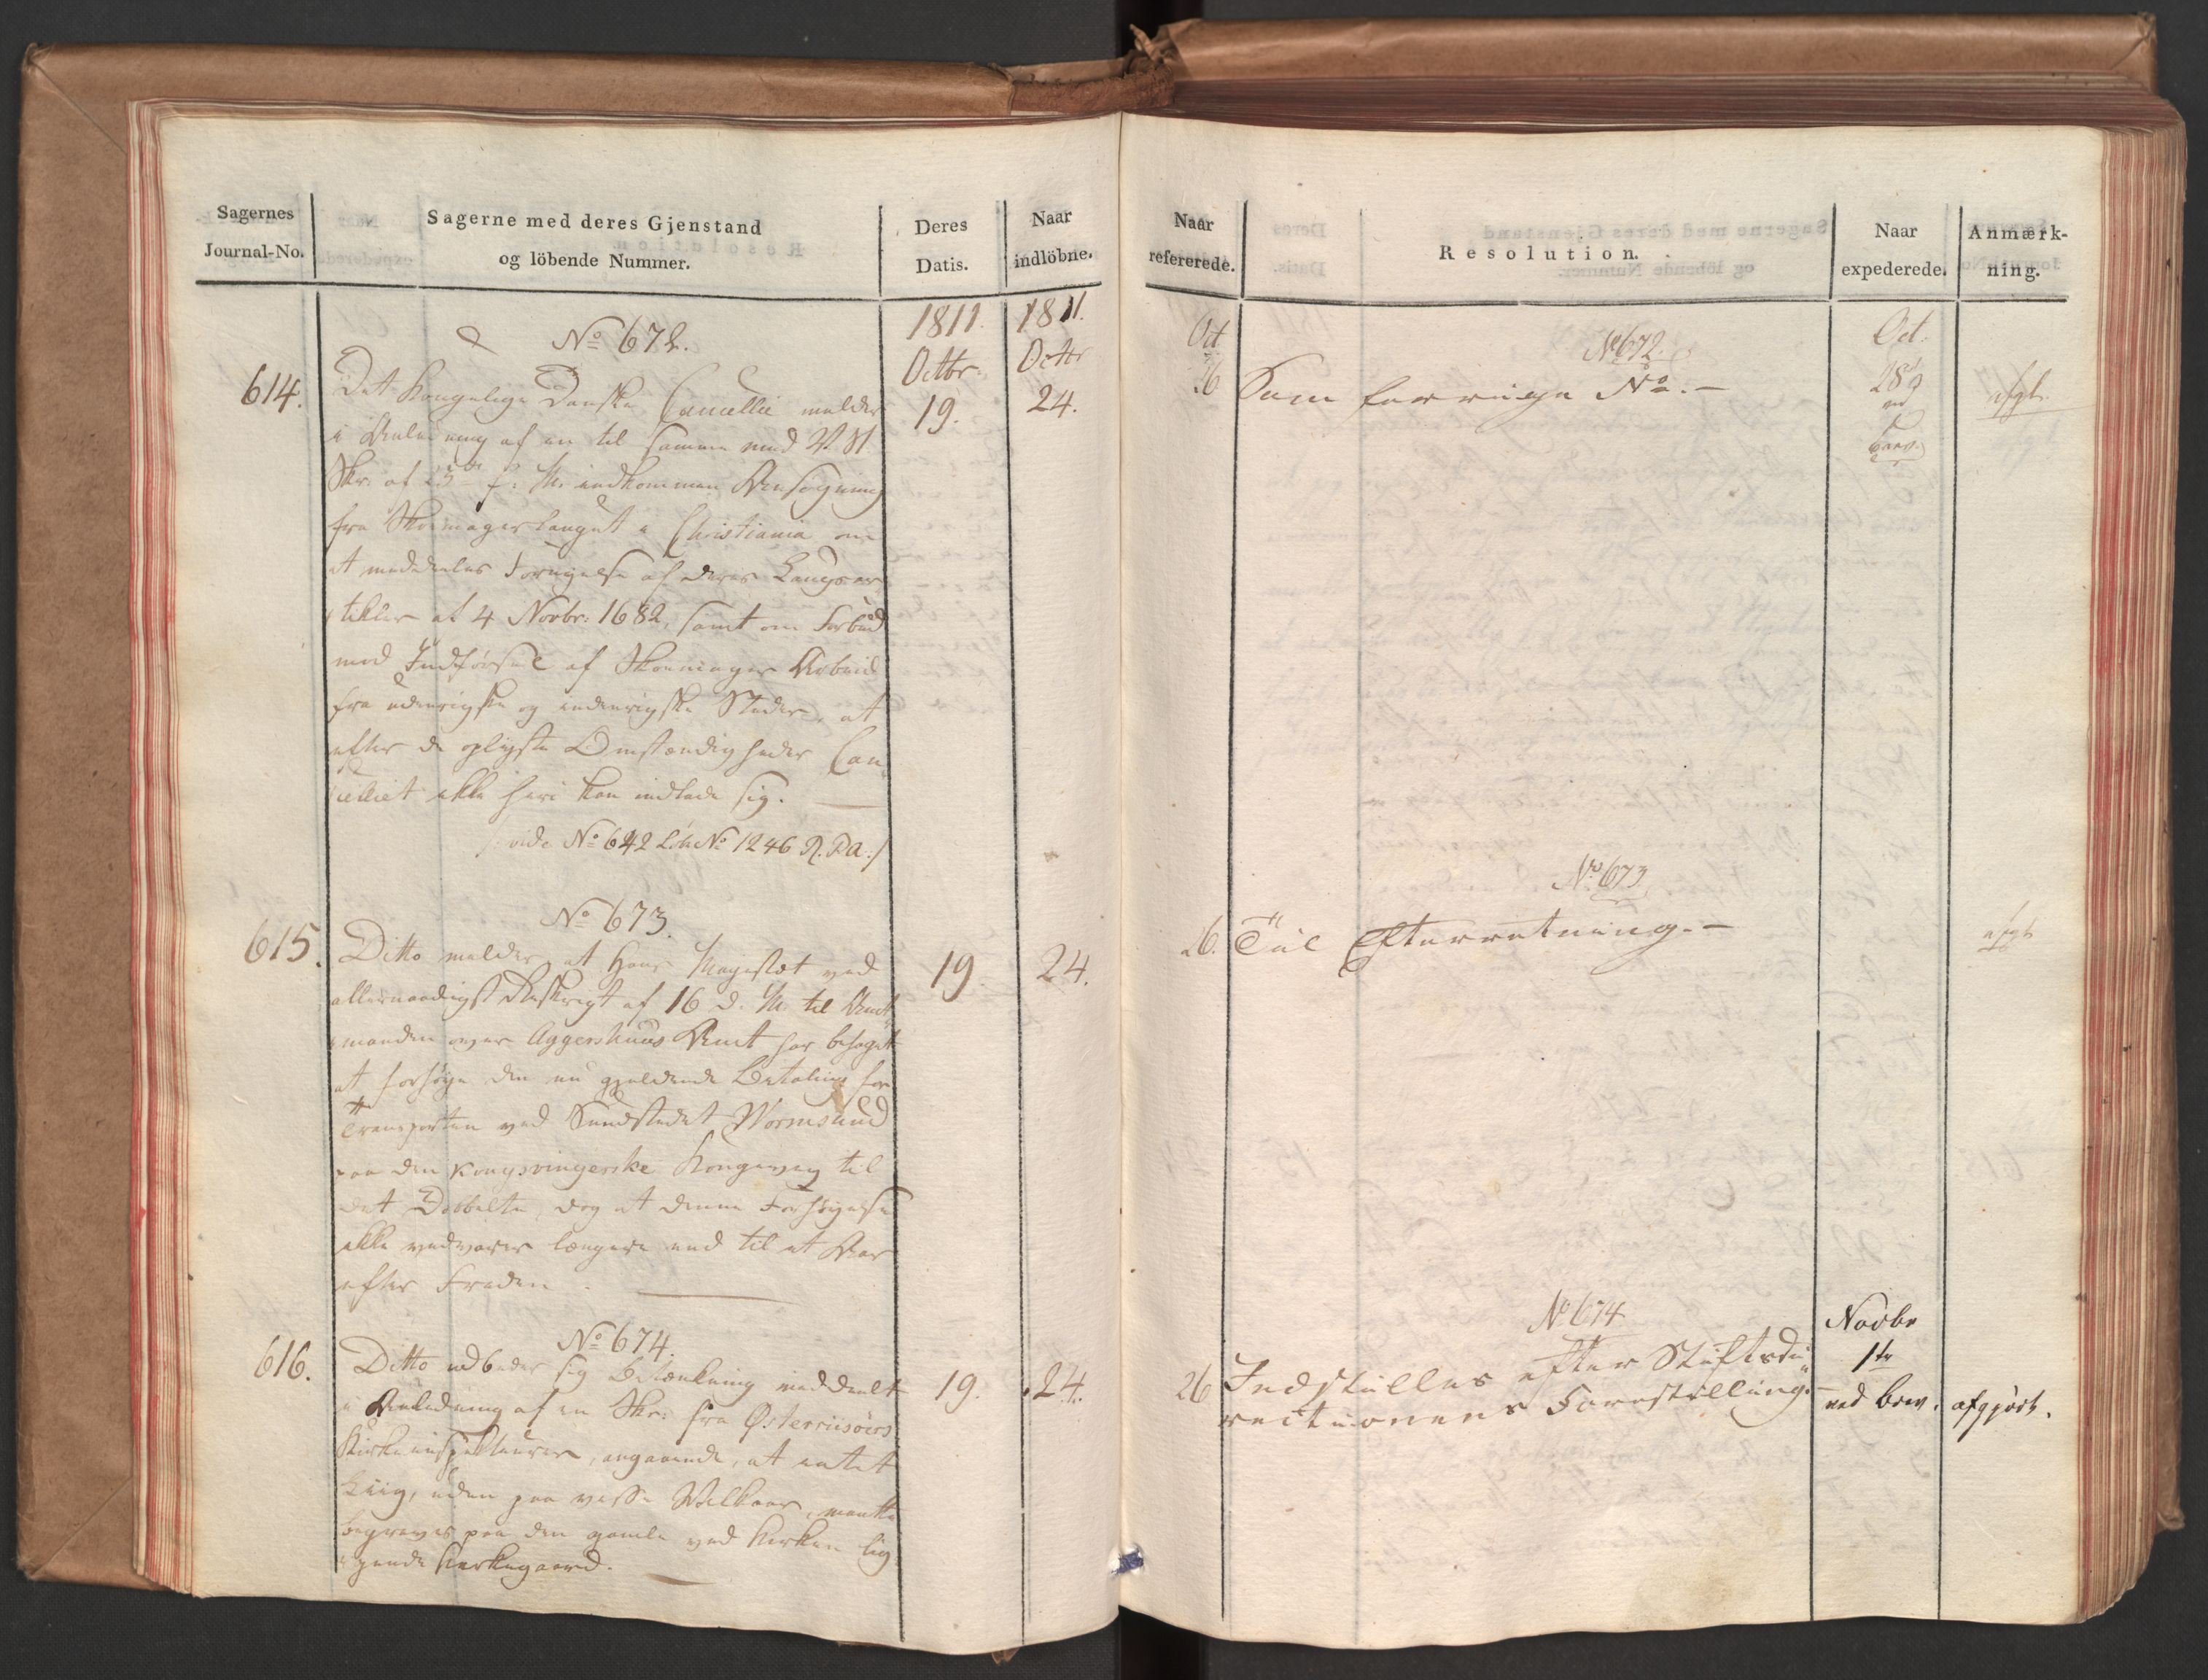 Sagernes
Journal-No.
Sagerne med deres Gjenstand
og löbende Nummer.
Deres
Datis.
Naar
indlöbne.
1811.
Octbr.
1811.
Octbr
No 672.
614.
Det Kongelige Danske Cancellie melder
19.
24.
i Anledning af en til samme med
Skr. af 23de f. M. indkommen Ansøgning
fra Skomagerlauget i Christiania om
at meddeeles Fornyelse af deres Laugsar
tikler af 4 Novbr: 1682, samt om Forbud
mod Indførsel af Skoemager Arbeid
fra udenrigske og indenrigske Steder, at
efter de oplyste Omstændigheder Can
celliet ikke heri kan indlade sig.
/: vide No 642 Lób No 1246 R. P. A :/
No 673.
615.
Ditto melder, at Hans Majestæt ved
19.
24.
allernaadigst Reskript af 16 d. M. til Amt
manden over Aggershuus Amt har behaget
at forhøye den nu gjeldende Betaling for
Transporten ved Sundstedet Wormsund
paa den Kongsvingerske Kongevey til
det Dobbelte, dog at denne Forhøyelse
ikke vedvarer længere end til et Aar
efter Freden.
No 674.
616.
Ditto udbeder sig Betænkning meddeelt
19.
24.
i Anledning af en Skr: fra Østerriisøers
Kirkeinspekteurer, angaaende, at intet
Liig, uden paa visse Vilkaar, maatte
begraves paa den gamle ved Kirken lig
gende Kirkegaard.
Naar
refererede.
Resolution.
Naar
expederede.
Anmærk-
ning.
Oct
26
No 672.
Som forrige No. –
Oct.
28
ved
brev.
afgl.
No 673
26.
Til Efterretning. –
afgl.
No 674
26
Indstilles efter Stiftsdi
rectionens Forestilling. –
Novbr
1te
ved brev.
afgjört.